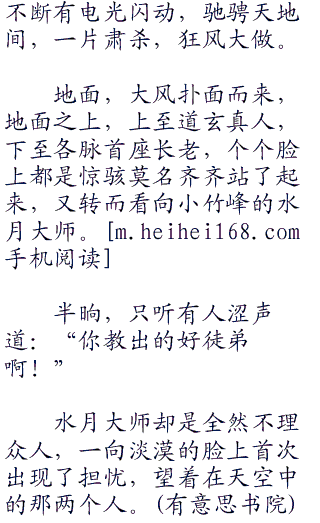 不断有电光闪动，驰骋天地
间，一片肃杀，狂风大做。
地面，大风扑面而来，
地面之上，上至道玄真人，
下至各脉首座长老，个个脸
上都是惊骇莫名齐齐站了起
来，又转而看向小竹峰的水
月大师。[m.heihei168.com
手机阅读]
半晌，只听有人涩声
道：“你教出的好徒弟
啊！”
水月大师却是全然不理
众人，一向淡漠的脸上首次
出现了担忧，望着在天空中
的那两个人。(有意思书院)